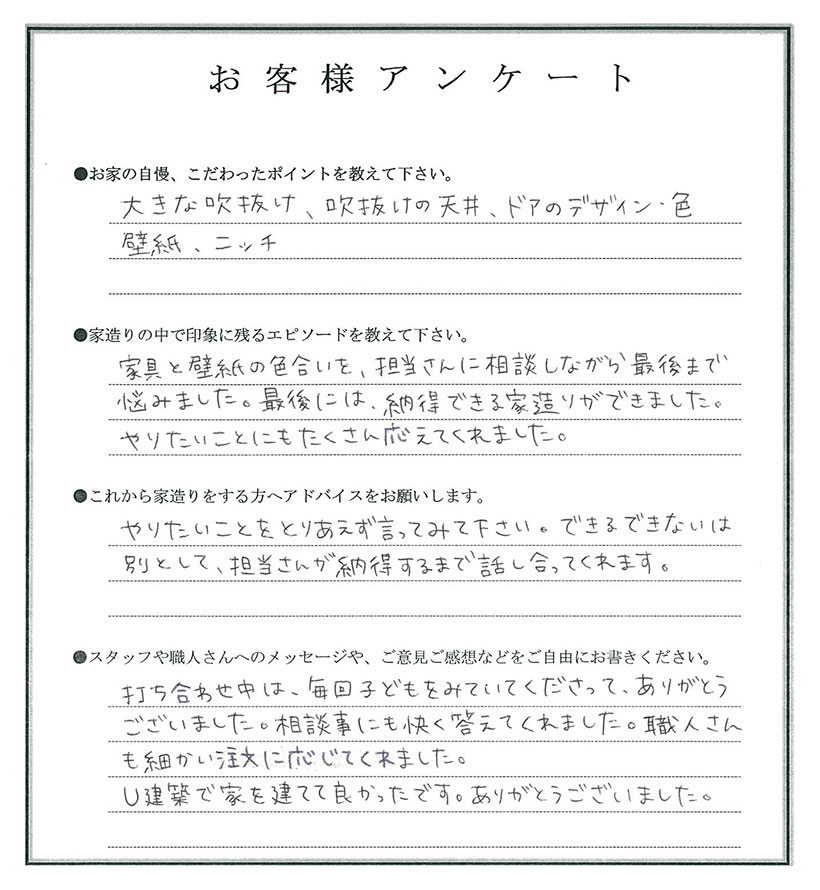 お客様アンケート
●お家の自慢、こだわったポイントを教えて下さい。
大きな吹抜け、吹抜けの天井、ドアのデザイン・色
壁紙、ニッチ
●家造りの中で印象に残るエピソードを教えて下さい。
家具と壁紙の色合いを、担当さんに相談しながら最後まで
悩みました。最後には、納得できる家造りができました。
やりたいことにもたくさん応えてくれました。
●これから家造りをする方へアドバイスをお願いします。
やりたいことをとりあえず言ってみて下さい。できるできないは
別として、担当さんが納得するまで話し合ってくれます。
●スタッフや職人さんへのメッセージや、ご意見ご感想などをご自由にお書きください。
打ち合わせ中は、毎回子どもをみていてくださって、ありがとう
ございました。相談事にも快く答えてくれました。職人さん
も細かい注文に応じてくれました。
U建築で家を建てて良かったです。ありがとうございました。